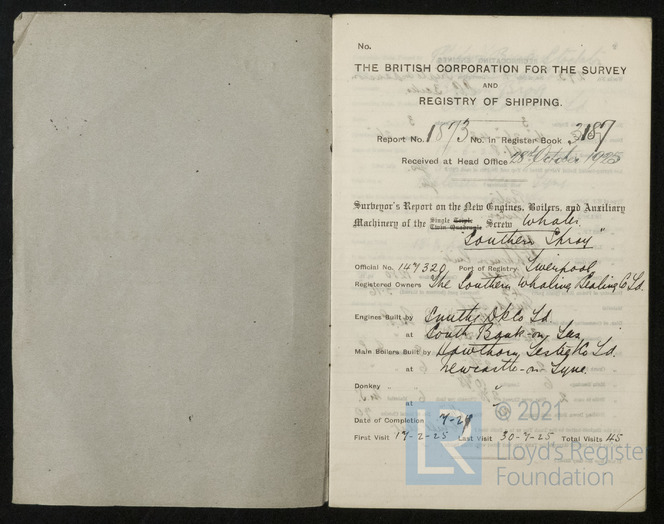 No.
THE BRITISH CORPORATION FOR THE SURVEY
AND
REGISTRY OF SHIPPING.
Report No. 1873 No. in Register Book 3187
Received at Head Office 28th October 1925
Surveyor's Report on the New Engines, Boilers, and Auxiliary
Machinery of the Single Triple Twin Quadruple Screw Whaler
"Southern Spray"
Official No. 147320 Port of Registry Liverpool
Registered Owners The Southern Whaling & Sealing Co Ld.
Engines Built by Smiths Dk Co Ld
at South Bank-on-Tees
Main Boilers Built by Hawthorn, Leslie & Co Ld.
at Newcastle-on-Tyne.
Donkey "
at
Date of Completion
First Visit 17-2-25 Last Visit 30-7-25 Total Visits 45
LR
© 2021
Lloyd's Register
Foundation